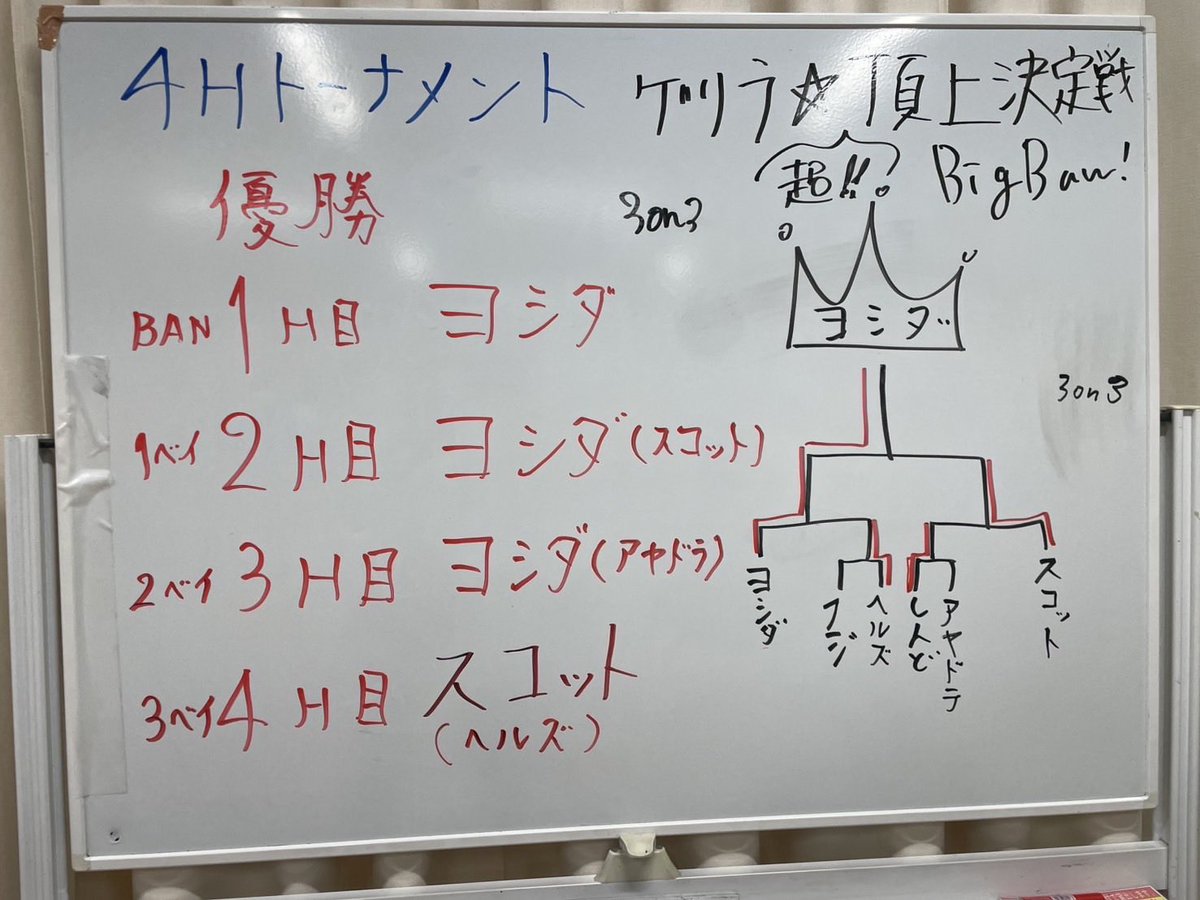 4Hトーナメント
優勝
BAN 1H目 ヨシダ
1ベイ 2H目 ヨシダ(スコット)
2ベイ 3H目 ヨシダ(アヤドラ)
3ベイ 4H目 スコット
(ヘルズ)
ゲリラ☆頂上決定戦
超!! BigBan!
3on3
ヨシダ
3on3
ヨシダ
フジ
ヘルズ
しんど
アヤドラ
スコット